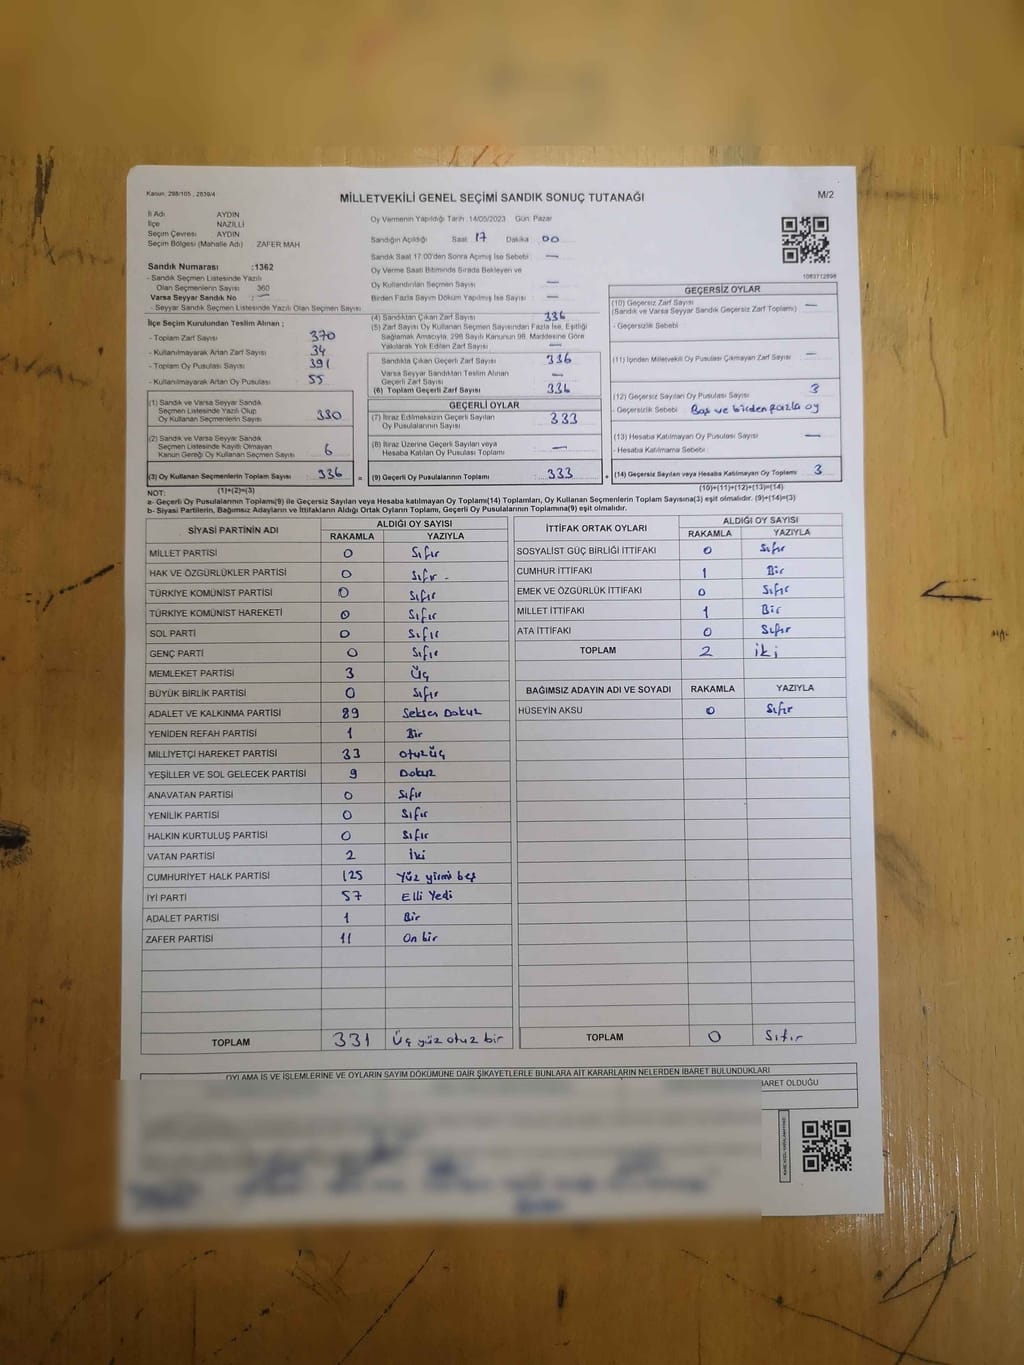 Kanun: 298/105 , 2839/4
MİLLETVEKİLİ GENEL SEÇİMİ SANDIK SONUÇ TUTANAĞI
M/2
İl Adı AYDIN
İlçe NAZİLLİ
Seçim Çevresi AYDIN
Seçim Bölgesi (Mahalle Adı) ZAFER MAH.
Sandık Numarası :1362
- Sandık Seçmen Listesinde Yazılı
Olan Seçmenlerin Sayısı 360
Varsa Seyyar Sandık No : —
- Seyyar Sandık Seçmen Listesinde Yazılı Olan Seçmen Sayısı
İlçe Seçim Kurulundan Teslim Alınan ;
- Toplam Zarf Sayısı 370
- Kullanılmayarak Artan Zarf Sayısı 34
- Toplam Oy Pusulası Sayısı 391
- Kullanılmayarak Artan Oy Pusulası 55
(1) Sandık ve Varsa Seyyar Sandık
Seçmen Listesinde Yazılı Olup
Oy Kullanan Seçmenlerin Sayısı 330
(2) Sandık ve Varsa Seyyar Sandık
Seçmen Listesinde Kayıtlı Olmayan
Kanun Gereği Oy Kullanan Seçmen Sayısı 6
(3) Oy Kullanan Seçmenlerin Toplam Sayısı 336
(1)+(2)=(3)
Oy Vermenin Yapıldığı Tarih :14/05/2023 Gün: Pazar
Sandığın Açıldığı Saat 17 Dakika 00
Sandık Saat 17.00'den Sonra Açılmış İse Sebebi —
Oy Verme Saati Bitiminde Sırada Bekleyen ve
Oy Kullandırılan Seçmen Sayısı —
Birden Fazla Sayım Döküm Yapılmış İse Sayısı —
(4) Sandıktan Çıkan Zarf Sayısı 336
(5) Zarf Sayısı Oy Kullanan Seçmen Sayısından Fazla İse, Eşitliği
Sağlamak Amacıyla, 298 Sayılı Kanunun 98. Maddesine Göre
Yakılarak Yok Edilen Zarf Sayısı —
Sandıkta Çıkan Geçerli Zarf Sayısı 336
Varsa Seyyar Sandıktan Teslim Alınan
Geçerli Zarf Sayısı —
(6) Toplam Geçerli Zarf Sayısı 336
GEÇERLİ OYLAR
(7) İtiraz Edilmeksizin Geçerli Sayılan
Oy Pusulalarının Sayısı 333
(8) İtiraz Üzerine Geçerli Sayılan veya
Hesaba Katılan Oy Pusulası Toplamı —
= (9) Geçerli Oy Pusulalarının Toplamı 333 +
1083712898
GEÇERSİZ OYLAR
(10) Geçersiz Zarf Sayısı
(Sandık ve Varsa Seyyar Sandık Geçersiz Zarf Toplamı) —
- Geçersizlik Sebebi
(11) İçinden Milletvekili Oy Pusulası Çıkmayan Zarf Sayısı —
(12) Geçersiz Sayılan Oy Pusulası Sayısı 3
- Geçersizlik Sebebi Boş ve birden fazla oy
(13) Hesaba Katılmayan Oy Pusulası Sayısı —
- Hesaba Katılmama Sebebi
(14) Geçersiz Sayılan veya Hesaba Katılmayan Oy Toplamı 3
(10)+(11)+(12)+(13)=(14)
NOT:
a- Geçerli Oy Pusulalarının Toplamı(9) ile Geçersiz Sayılan veya Hesaba katılmayan Oy Toplamı(14) Toplamları, Oy Kullanan Seçmenlerin Toplam Sayısına(3) eşit olmalıdır. (9)+(14)=(3)
b- Siyasi Partilerin, Bağımsız Adayların ve İttifakların Aldığı Ortak Oyların Toplamı, Geçerli Oy Pusulalarının Toplamına(9) eşit olmalıdır.
SİYASİ PARTİNİN ADI ALDIĞI OY SAYISI
RAKAMLA YAZIYLA
MİLLET PARTİSİ 0 Sıfır
HAK VE ÖZGÜRLÜKLER PARTİSİ 0 Sıfır
TÜRKİYE KOMÜNİST PARTİSİ 0 Sıfır
TÜRKİYE KOMÜNİST HAREKETİ 0 Sıfır
SOL PARTİ 0 Sıfır
GENÇ PARTİ 0 Sıfır
MEMLEKET PARTİSİ 3 Üç
BÜYÜK BİRLİK PARTİSİ 0 Sıfır
ADALET VE KALKINMA PARTİSİ 89 Seksen Dokuz
YENİDEN REFAH PARTİSİ 1 Bir
MİLLİYETÇİ HAREKET PARTİSİ 33 Otuzüç
YEŞİLLER VE SOL GELECEK PARTİSİ 9 Dokuz
ANAVATAN PARTİSİ 0 Sıfır
YENİLİK PARTİSİ 0 Sıfır
HALKIN KURTULUŞ PARTİSİ 0 Sıfır
VATAN PARTİSİ 2 İki
CUMHURİYET HALK PARTİSİ 125 Yüz yirmi beş
İYİ PARTİ 57 Elli Yedi
ADALET PARTİSİ 1 Bir
ZAFER PARTİSİ 11 On bir
TOPLAM 331 Üç yüz otuz bir
İTTİFAK ORTAK OYLARI ALDIĞI OY SAYISI
RAKAMLA YAZIYLA
SOSYALİST GÜÇ BİRLİĞİ İTTİFAKI 0 Sıfır
CUMHUR İTTİFAKI 1 Bir
EMEK VE ÖZGÜRLÜK İTTİFAKI 0 Sıfır
MİLLET İTTİFAKI 1 Bir
ATA İTTİFAKI 0 Sıfır
TOPLAM 2 iki
BAĞIMSIZ ADAYIN ADI VE SOYADI RAKAMLA YAZIYLA
HÜSEYİN AKSU 0 Sıfır
TOPLAM 0 Sıfır
OYLAMA İŞ VE İŞLEMLERİNE VE OYLARIN SAYIM DÖKÜMÜNE DAİR ŞİKAYETLERLE BUNLARA AİT KARARLARIN NELERDEN İBARET BULUNDUKLARI
BARET OLDUĞU